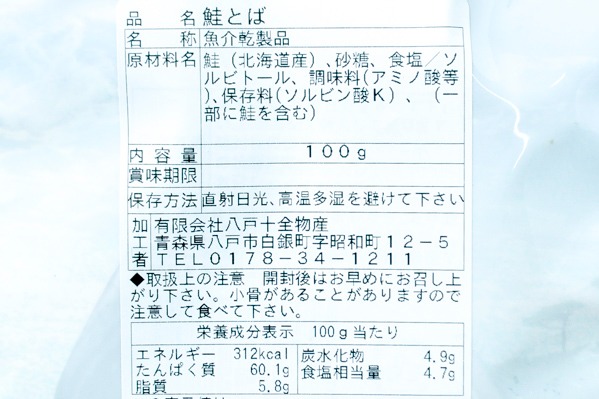 品名 鮭とば
名称 魚介乾製品
原材料名 鮭（北海道産）、砂糖、食塩／ソ
ルビトール、調味料(アミノ酸等
)、保存料(ソルビン酸Ｋ）、（一
部に鮭を含む）
内容量 １００ｇ
賞味期限
保存方法 直射日光、高温多湿を避けて下さい
加工者 有限会社八戸十全物産
青森県八戸市白銀町字昭和町１２－５
ＴＥＬ０１７８－３４－１２１１
◆取扱上の注意 開封後はお早めにお召し上
がり下さい。小骨があることがありますので
注意して食べて下さい。
栄養成分表示 100ｇ当たり
エネルギー 312kcal 炭水化物 4.9g
たんぱく質 60.1g 食塩相当量 4.7g
脂質 5.8g